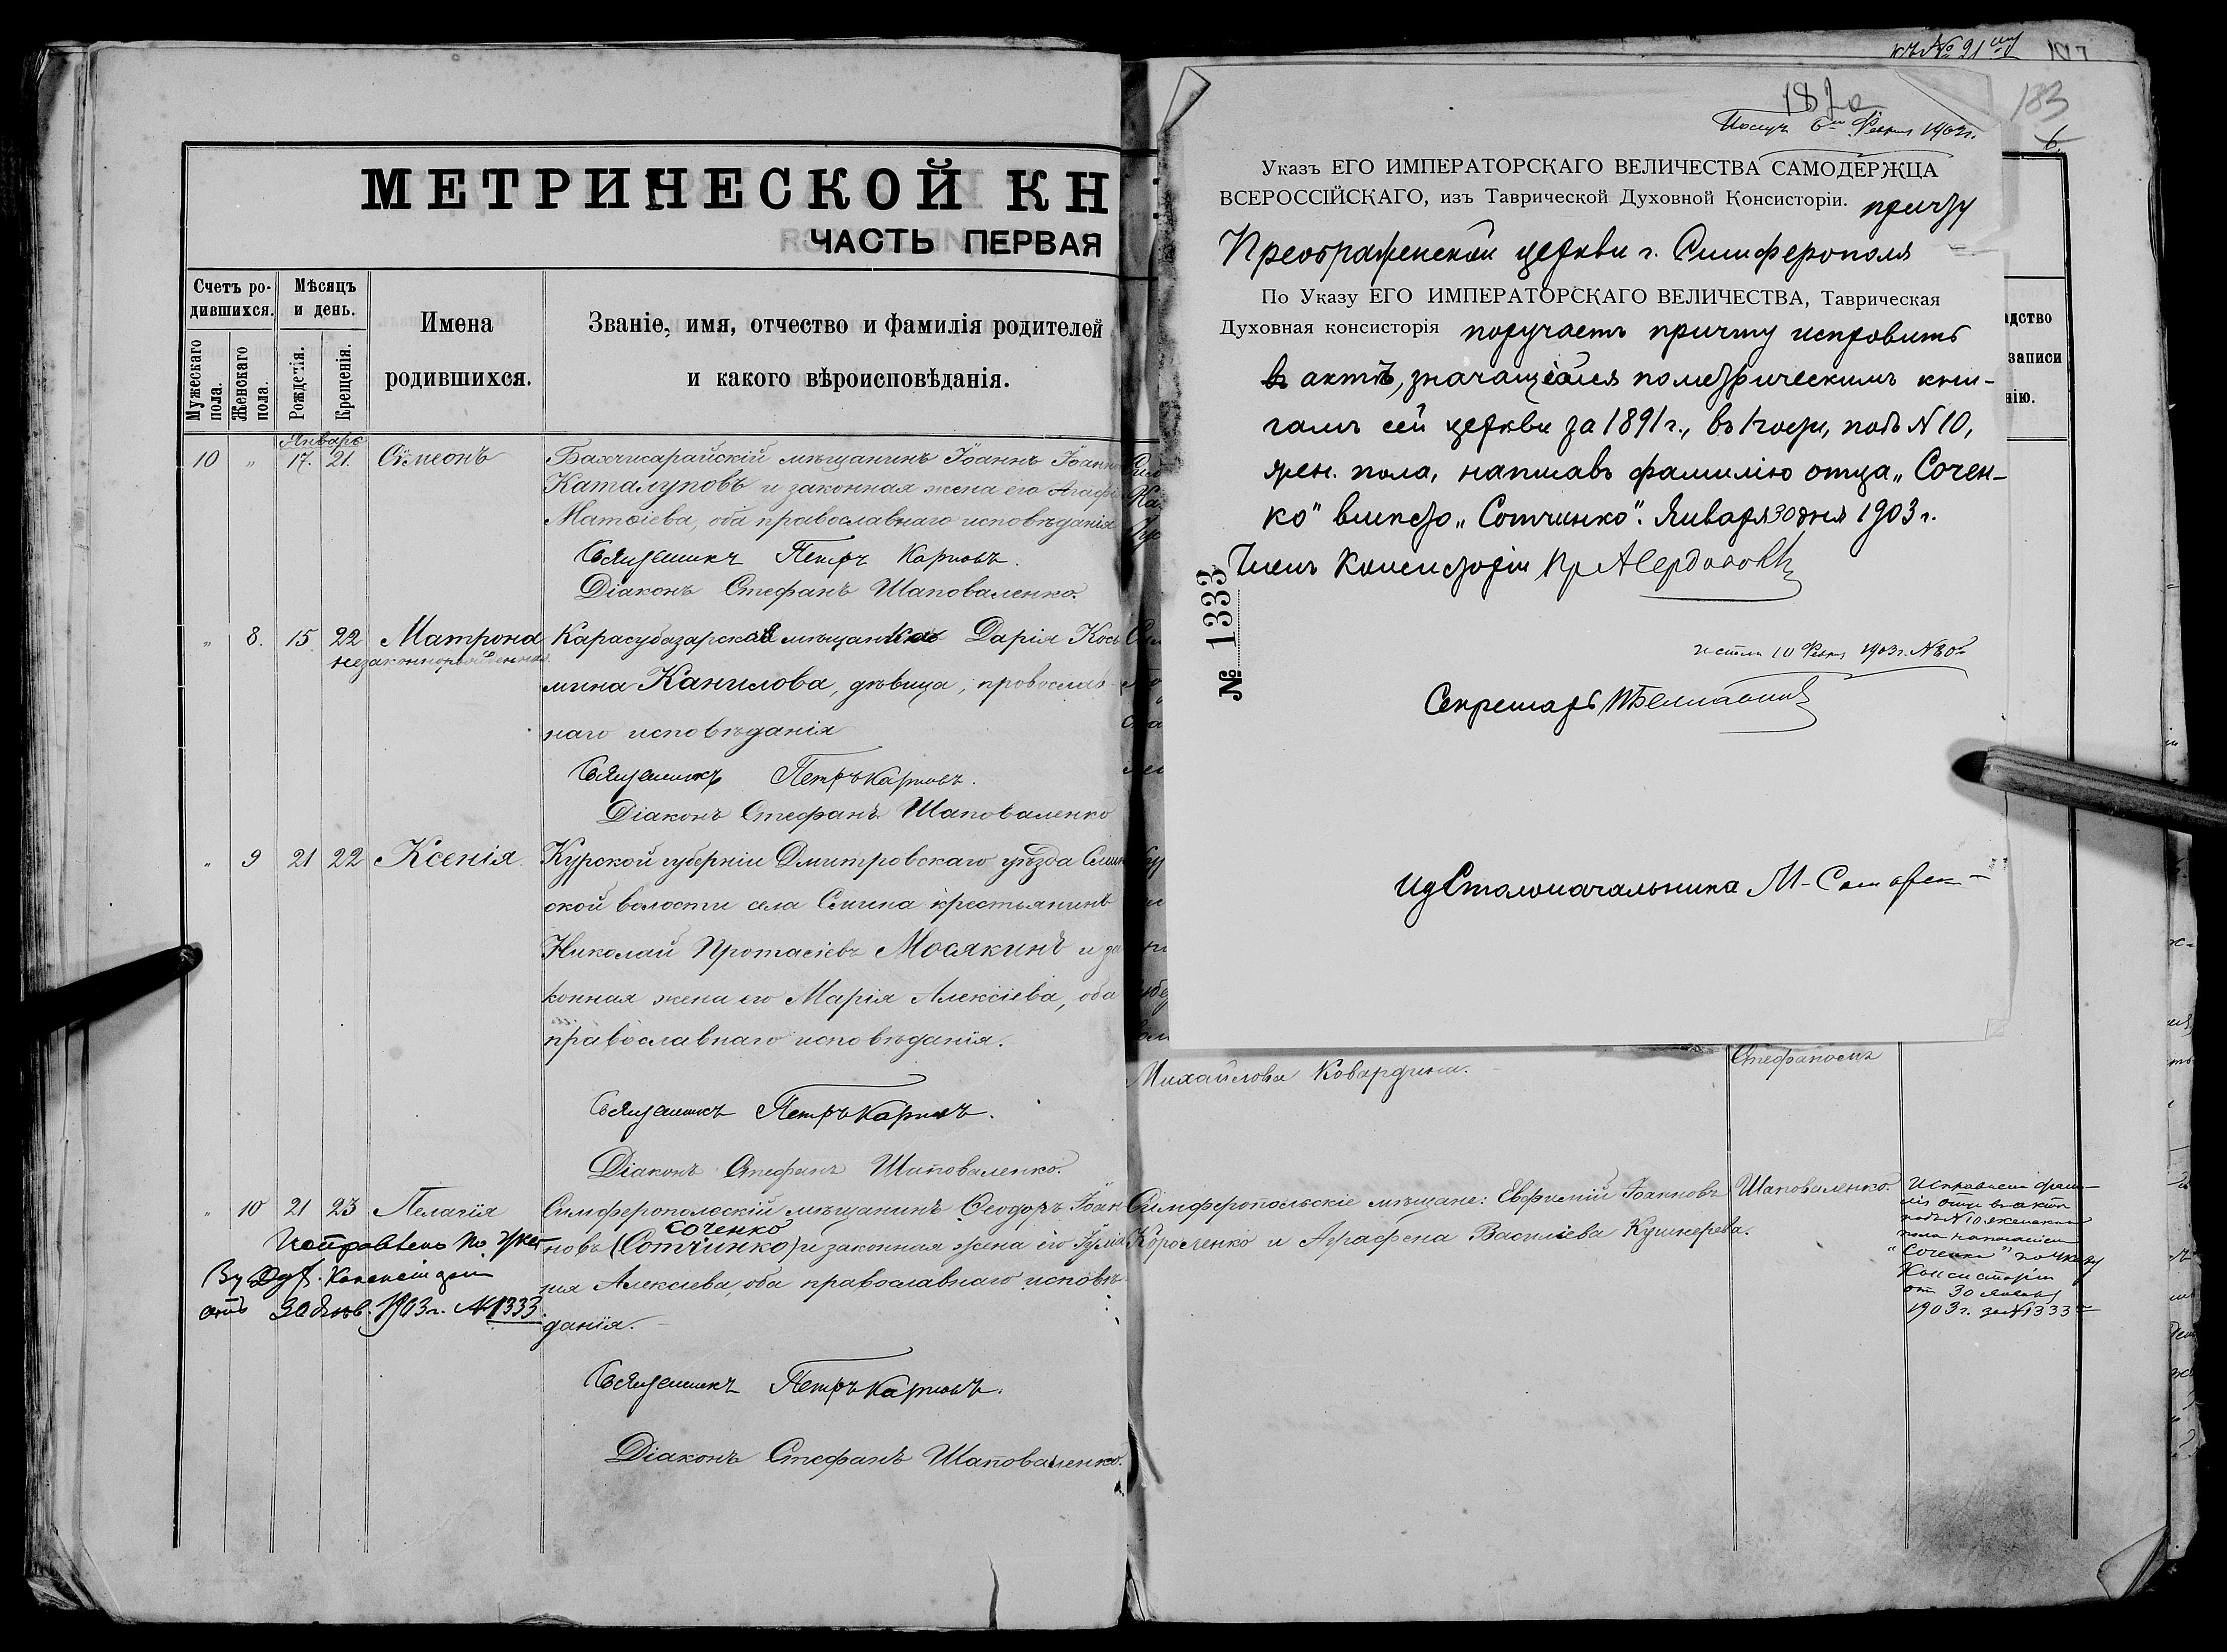 МЕТРИЧЕСКОЙ КН
ЧАСТЬ ПЕРВАЯ
Счетъ ро-
дившихся.
Мѣсяцъ
и день.
Имена
родившихся.
Званіе, имя, отчество и фамилія родителей
и какого вѣроисповѣданія.
Мужескаго
пола.
Женскаго
пола.
Рожденія.
Крещенія.
Январь
10 " 17. 21. Сѵмеонъ Бахчисарайскій мѣщанинъ Іоаннъ Іоанн
Каталуповъ и законная жена его Агафі
Матѳіева, оба православнаго исповѣданія
Священникъ Петръ Карповъ.
Діаконъ Стефанъ Шаповаленко.
" 8. 15 22 Матрона Карасубазарская мѣщанка Дарія Кось
незаконнорожденная.
мина Канилова, дѣвица, православ-
наго исповѣданія
Священникъ Петръ Карповъ.
Діаконъ Стефанъ Шаповаленко
" 9 21 22 Ксенія. Курской губерніи Дмитровскаго уѣзда
ской волости села крестьянинъ
Николай Протасіевъ Мосякинъ и за
конная жена его Марія Алексіева, оба
православнаго исповѣданія.
Священникъ Петръ Карповъ.
Діаконъ Стефанъ Шаповаленко.
" 10 21 23 Пелагія Симферопольскій мѣщанинъ Ѳеодоръ Іоан
Соченко
новъ (Сотчинко) и законная жена его
нія Алексіева, оба православнаго исповѣ-
данія.
Исправлено по Указу
Дух. Консисторіи
отъ 30 Янв. 1903 г. № 1333.
Священникъ Петръ Карповъ.
Діаконъ Стефанъ Шаповаленко.
къ № 91
183
6
Получ. 6 Февраля 1903 г.
Указъ ЕГО ИМПЕРАТОРСКАГО ВЕЛИЧЕСТВА САМОДЕРЖЦА
ВСЕРОССІЙСКАГО, изъ Таврической Духовной Консисторіи. причту
Преображенской церкви г. Симферополя
По Указу ЕГО ИМПЕРАТОРСКАГО ВЕЛИЧЕСТВА, Таврическая
Духовная консисторія поручаетъ причту исправить
въ актѣ, значащейся по метрическимъ кни-
гамъ сей церкви за 1891 г., въ 1 части, подъ № 10,
жен. пола, написавъ фамилію отца „Сочен-
ко" вмѣсто „Сотчинко". Января 30 дня 1903 г.
Членъ Консисторіи
№ 1333
10 Февр. 1903 г. №
Секретарь
Ид Столоначальника
адство
записи
нію.
Михайлова Ковардина.
Стефаномъ
Симферопольскіе мѣщане: Евфимій Іоанновъ
Короленко и Аграфена Василіева Кушнерева.
Шаповаленко.
Исправлена фами-
лія отца въ актѣ
подъ № 10 женскаго
пола написаніемъ
"Соченко" по указу
Консисторіи
отъ 30 Января
1903 г. за № 1333